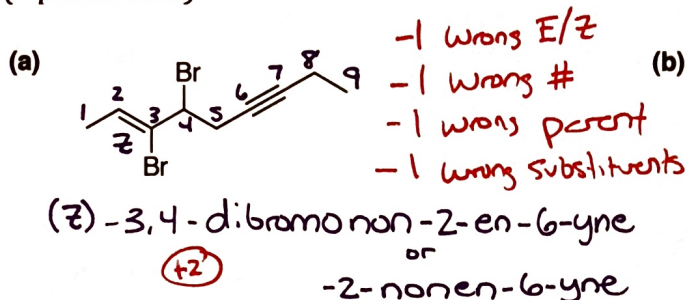 (a)
Br
1 2 3 4 5 6 7 8 9
Z
Br
-1 wrong E/Z
-1 wrong #
-1 wrong parent
-1 wrong substituents
(b)
(Z)-3,4-dibromonon-2-en-6-yne
+2
or
-2-nonen-6-yne